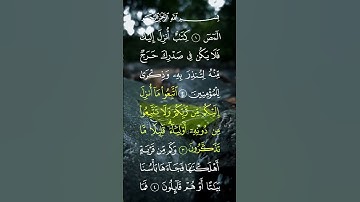 بِسْمِ ٱللَّهِ ٱلرَّحْمَٰنِ ٱلرَّحِيمِ
الٓمٓصٓ ١ كِتَٰبٌ أُنزِلَ إِلَيْكَ
فَلَا يَكُن فِى صَدْرِكَ حَرَجٌ
مِّنْهُ لِتُنذِرَ بِهِۦ وَذِكْرَىٰ
لِلْمُؤْمِنِينَ ٢ ٱتَّبِعُوا۟ مَآ أُنزِلَ
إِلَيْكُم مِّن رَّبِّكُمْ وَلَا تَتَّبِعُوا۟
مِن دُونِهِۦٓ أَوْلِيَآءَ ۗ قَلِيلًا مَّا
تَذَكَّرُونَ ٣ وَكَم مِّن قَرْيَةٍ
أَهْلَكْنَٰهَا فَجَآءَهَا بَأْسُنَا
بَيَٰتًا أَوْ هُمْ قَآئِلُونَ ٤ فَمَا